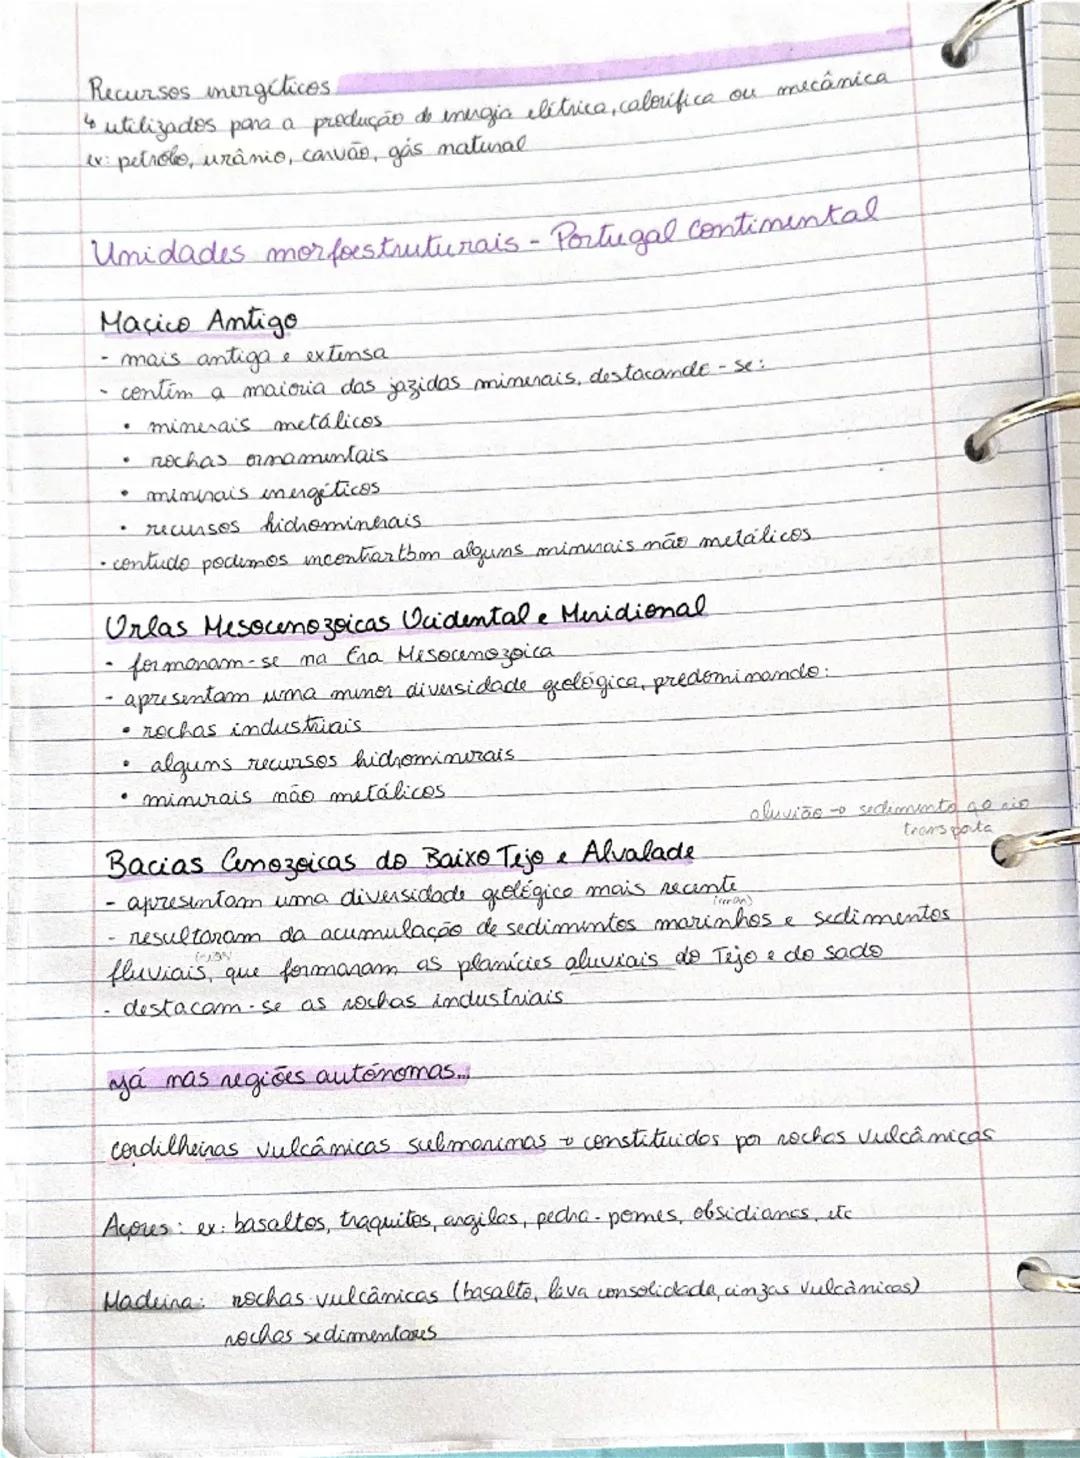 Recursos energéticos
↳ utilizados para a produção de energia elétrica, calorífica ou mecânica
ex: petróleo, urânio, carvão, gás natural
Unidades morfoestruturais - Portugal continental
Maciço Antigo
- mais antiga e extensa
- contém a maioria das jazidas minerais, destacando-se:
• minerais metálicos
• rochas ornamentais
• minerais energéticos
• recursos hidrominerais
• contudo podemos encontrar tbm alguns minerais não metálicos
Orlas Mesocenozoicas Ocidental e Meridional
- formaram-se na Era Mesocenozoica
- apresentam uma menor diversidade geológica, predominando:
• rochas industriais
• alguns recursos hidrominerais
• minerais não metálicos
aluvião → sedimento qo rio
transporta
Bacias Cenozoicas do Baixo Tejo e Alvalade
- apresentam uma diversidade geológica mais recente
(mar)
- resultaram da acumulação de sedimentos marinhos e sedimentos
(rios)
fluviais, que formaram as planícies aluviais do Tejo e do sado
- destacam-se as rochas industriais
Já nas regiões autónomas...
cordilheiras vulcânicas submarinas → constituídas por rochas vulcânicas
Açores: ex: basaltos, traquitos, argilas, pedra-pomes, obsidianas, etc
Madeira: rochas vulcânicas (basalto, lava consolidada, cinzas vulcânicas)
rochas sedimentares